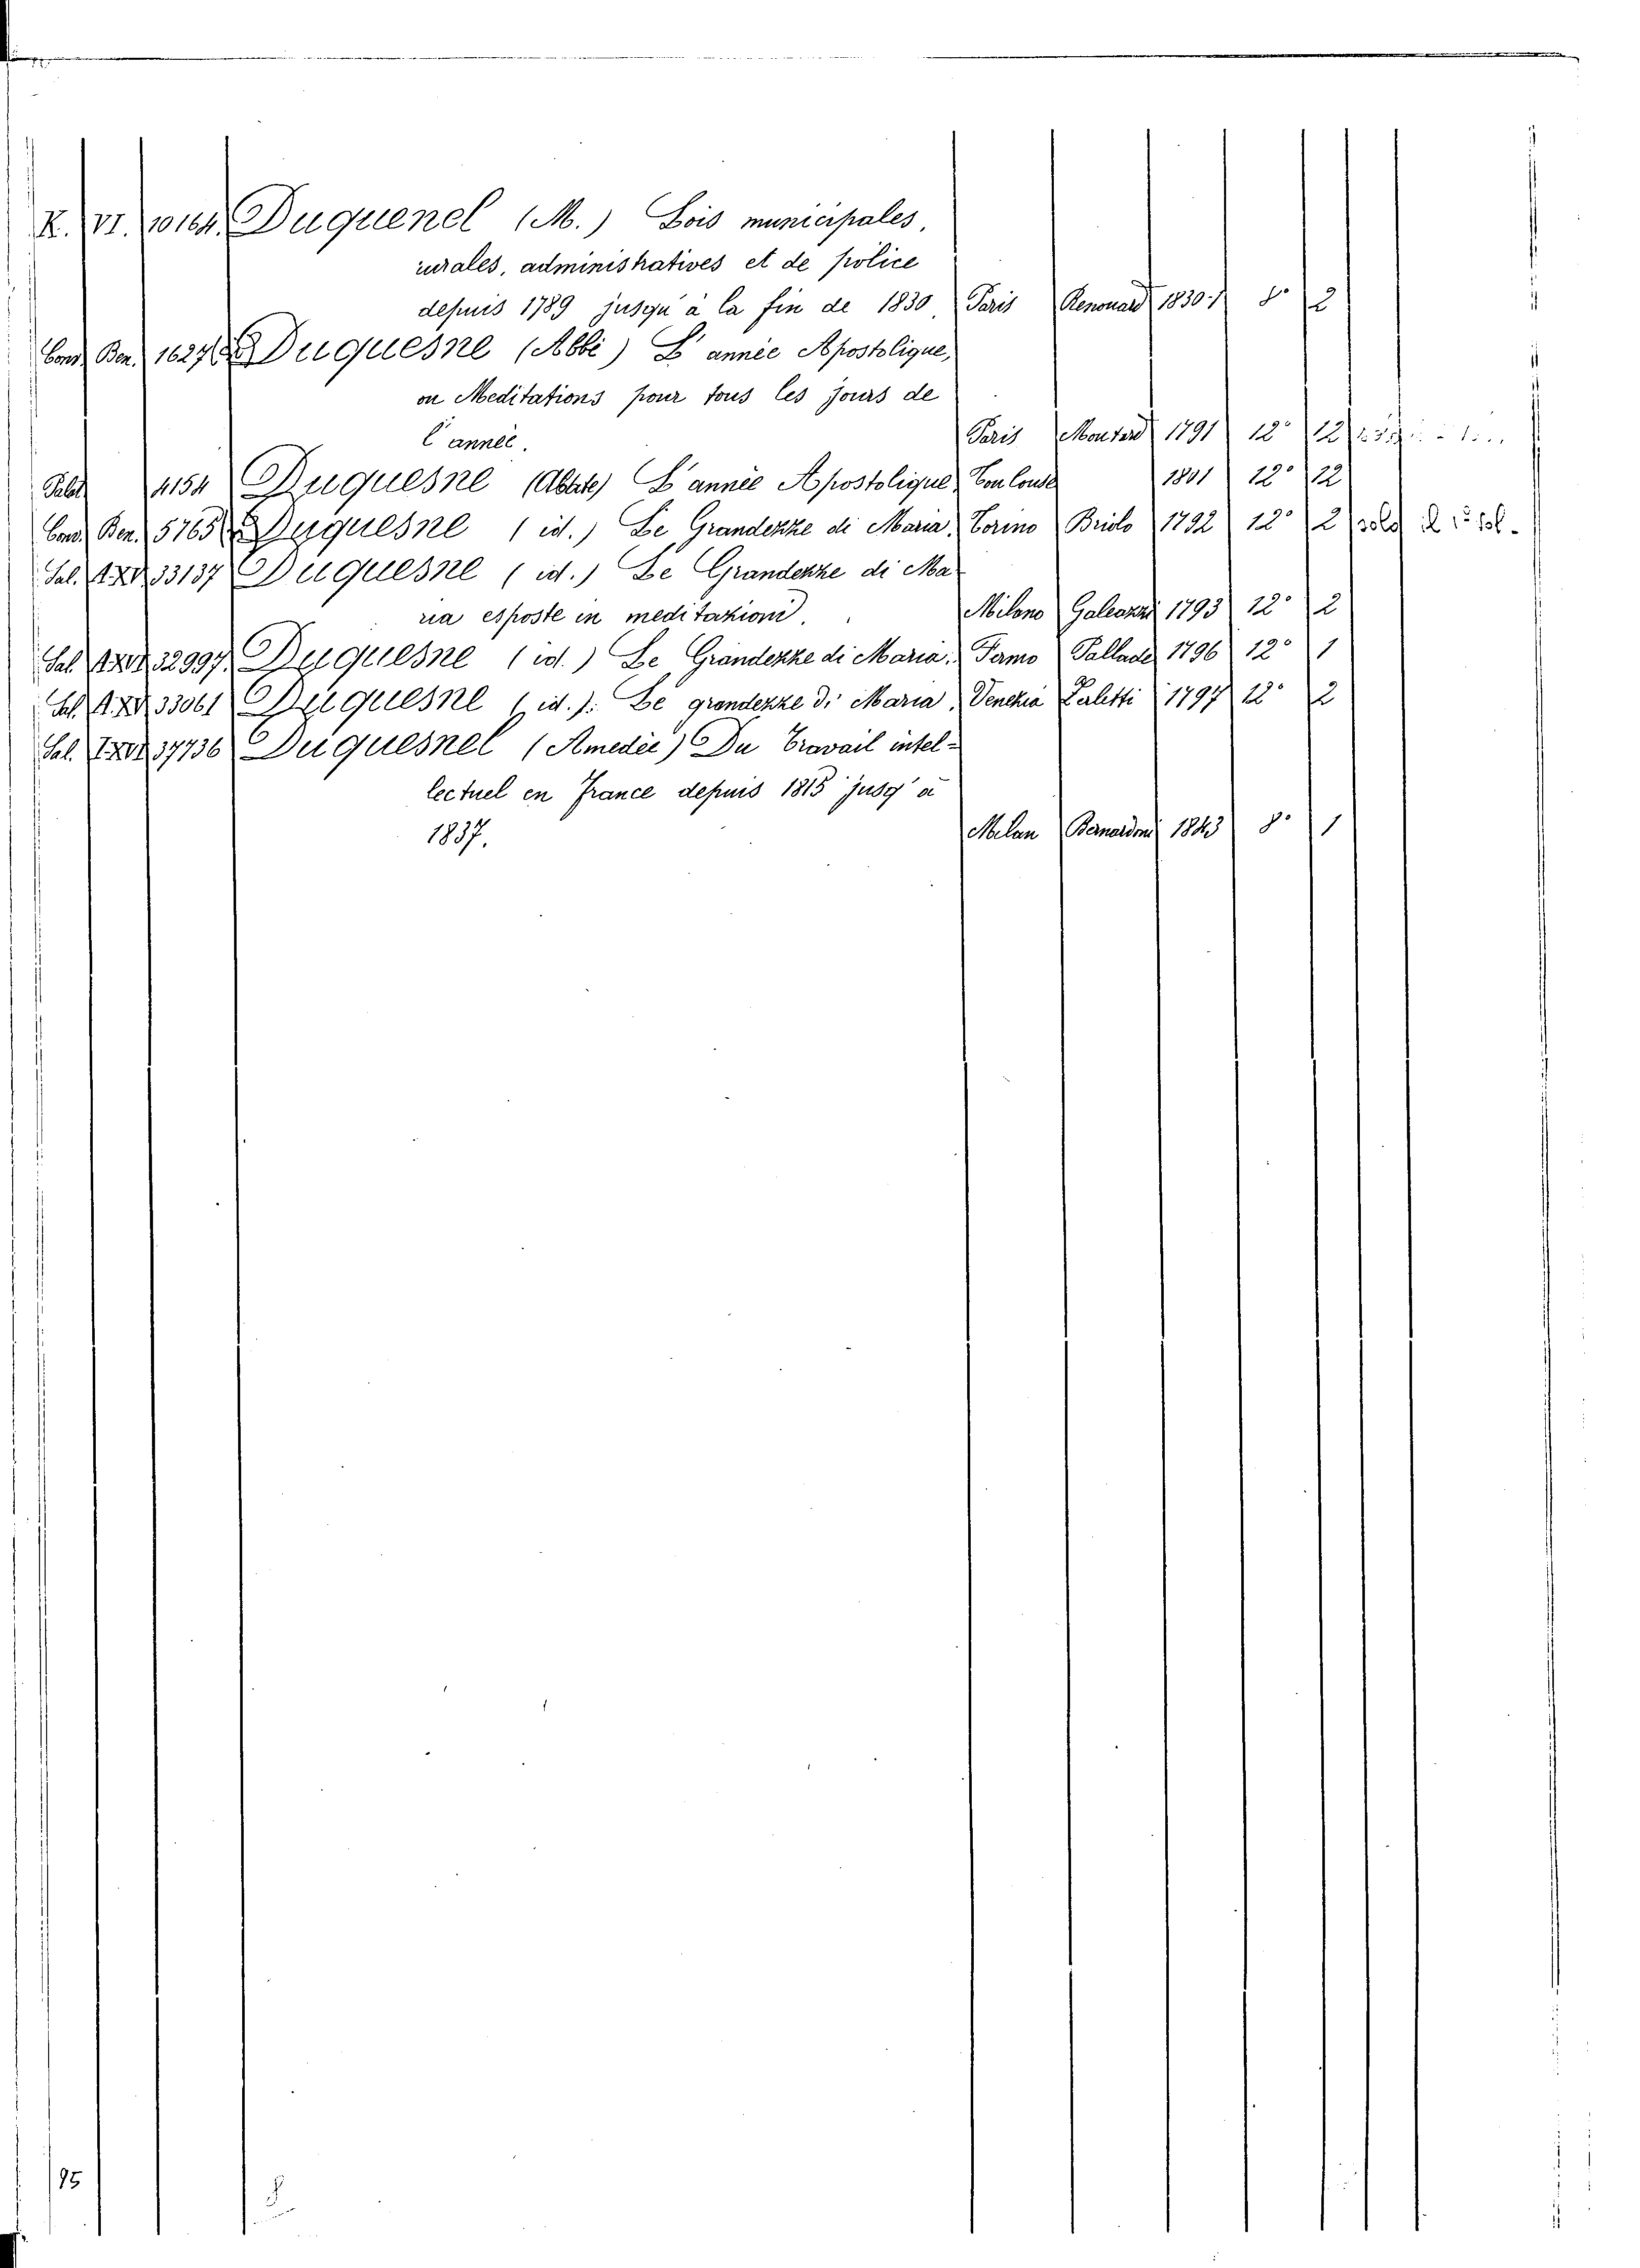 X. VI. 10164. Duquenel (M.) Lois municipales,
rurales, administratives et de police
depuis 1789 jusqu'à la fin de 1830. Paris Renouard 1830-1 8° 2
Cons. Ben. 16278 Duquesne (Abbé) L'année Apostolique,
ou Meditations pour tous les jours de
l'année. Paris Moutard 1791 12° 12
4154 Duquesne (Abate) L'année Apostolique. 1801 12° 12
Cons. Ben. 5765 Duquesne (id.) Le Grandezze di Maria. Torino Briolo 1792 12° 2
Sal. 33137 Duquesne (id.) Le Grandezze di Ma
ria esposte in meditazioni. Milano Galeazzi 1793 12° 2
Sal. 32997. Duquesne (id.) Le Grandezze di Maria. Fermo Pallade 1796 12° 1
Sal. 33061 Duquesne (id.). Le grandezze di Maria. Venezia Zaletti 1797 12° 2
Sal. 37736 Duquesnel (Amedée) Du Travail intel-
lectuel en France depuis 1815 jusq'à
1837. Milan Bernardoni 1843 8° 1
95